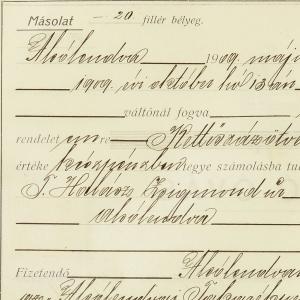 Másolat – 20. fillér bélyeg.
Alsólendva 1909. máj
1909. évi október hó 13án
váltónál fogva
rendelet re Kettőszázötv
értéke készpénzben tegye számolásba tul
T. Halász Zsigmond úr
Alsólendva
Fizetendő Alsólendván